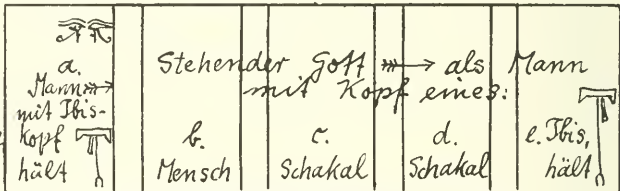 a.
Mann
mit Ibis-
kopf
hält
Stehender Gott als Mann
mit Kopf eines:
b.
Mensch
c.
Schakal
d.
Schakal
e. Ibis,
hält